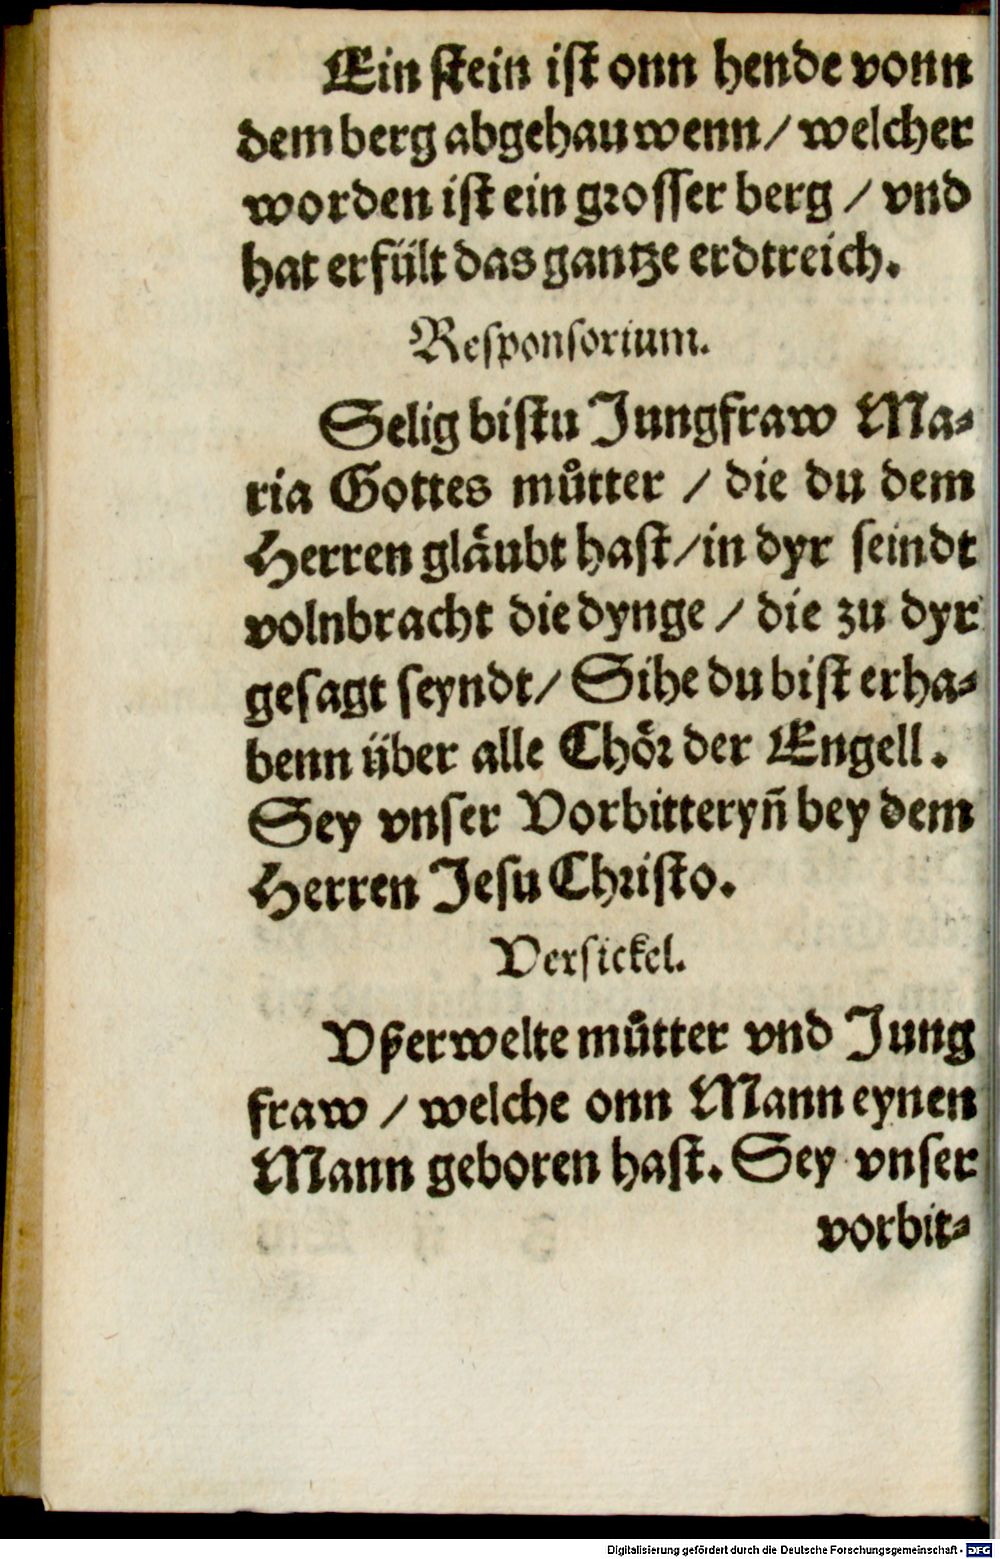 Ein ſtein iſt onn hende vonn
dem berg abgehauwenn / welcher
worden iſt ein groſſer berg / vnd
hat erfült das gantze erdtreich.
Reſponſorium.
Selig biſtu Jungfraw Ma⸗
ria Gottes můtter / die du dem
Herren glaͤubt haſt / in dyr ſeindt
volnbracht die dynge / die zu dyr
geſagt ſeyndt / Sihe du biſt erha⸗
benn über alle Choͤr der Engell.
Sey vnſer Vorbitteryñ bey dem
Herren Jeſu Chriſto.
Verſickel.
Vßerwelte můtter vnd Jung
fraw / welche onn Mann eynen
Mann geboren haſt. Sey vnſer
vorbit⸗
Digitalisierung gefördert durch die Deutsche Forschungsgemeinschaft - DFG